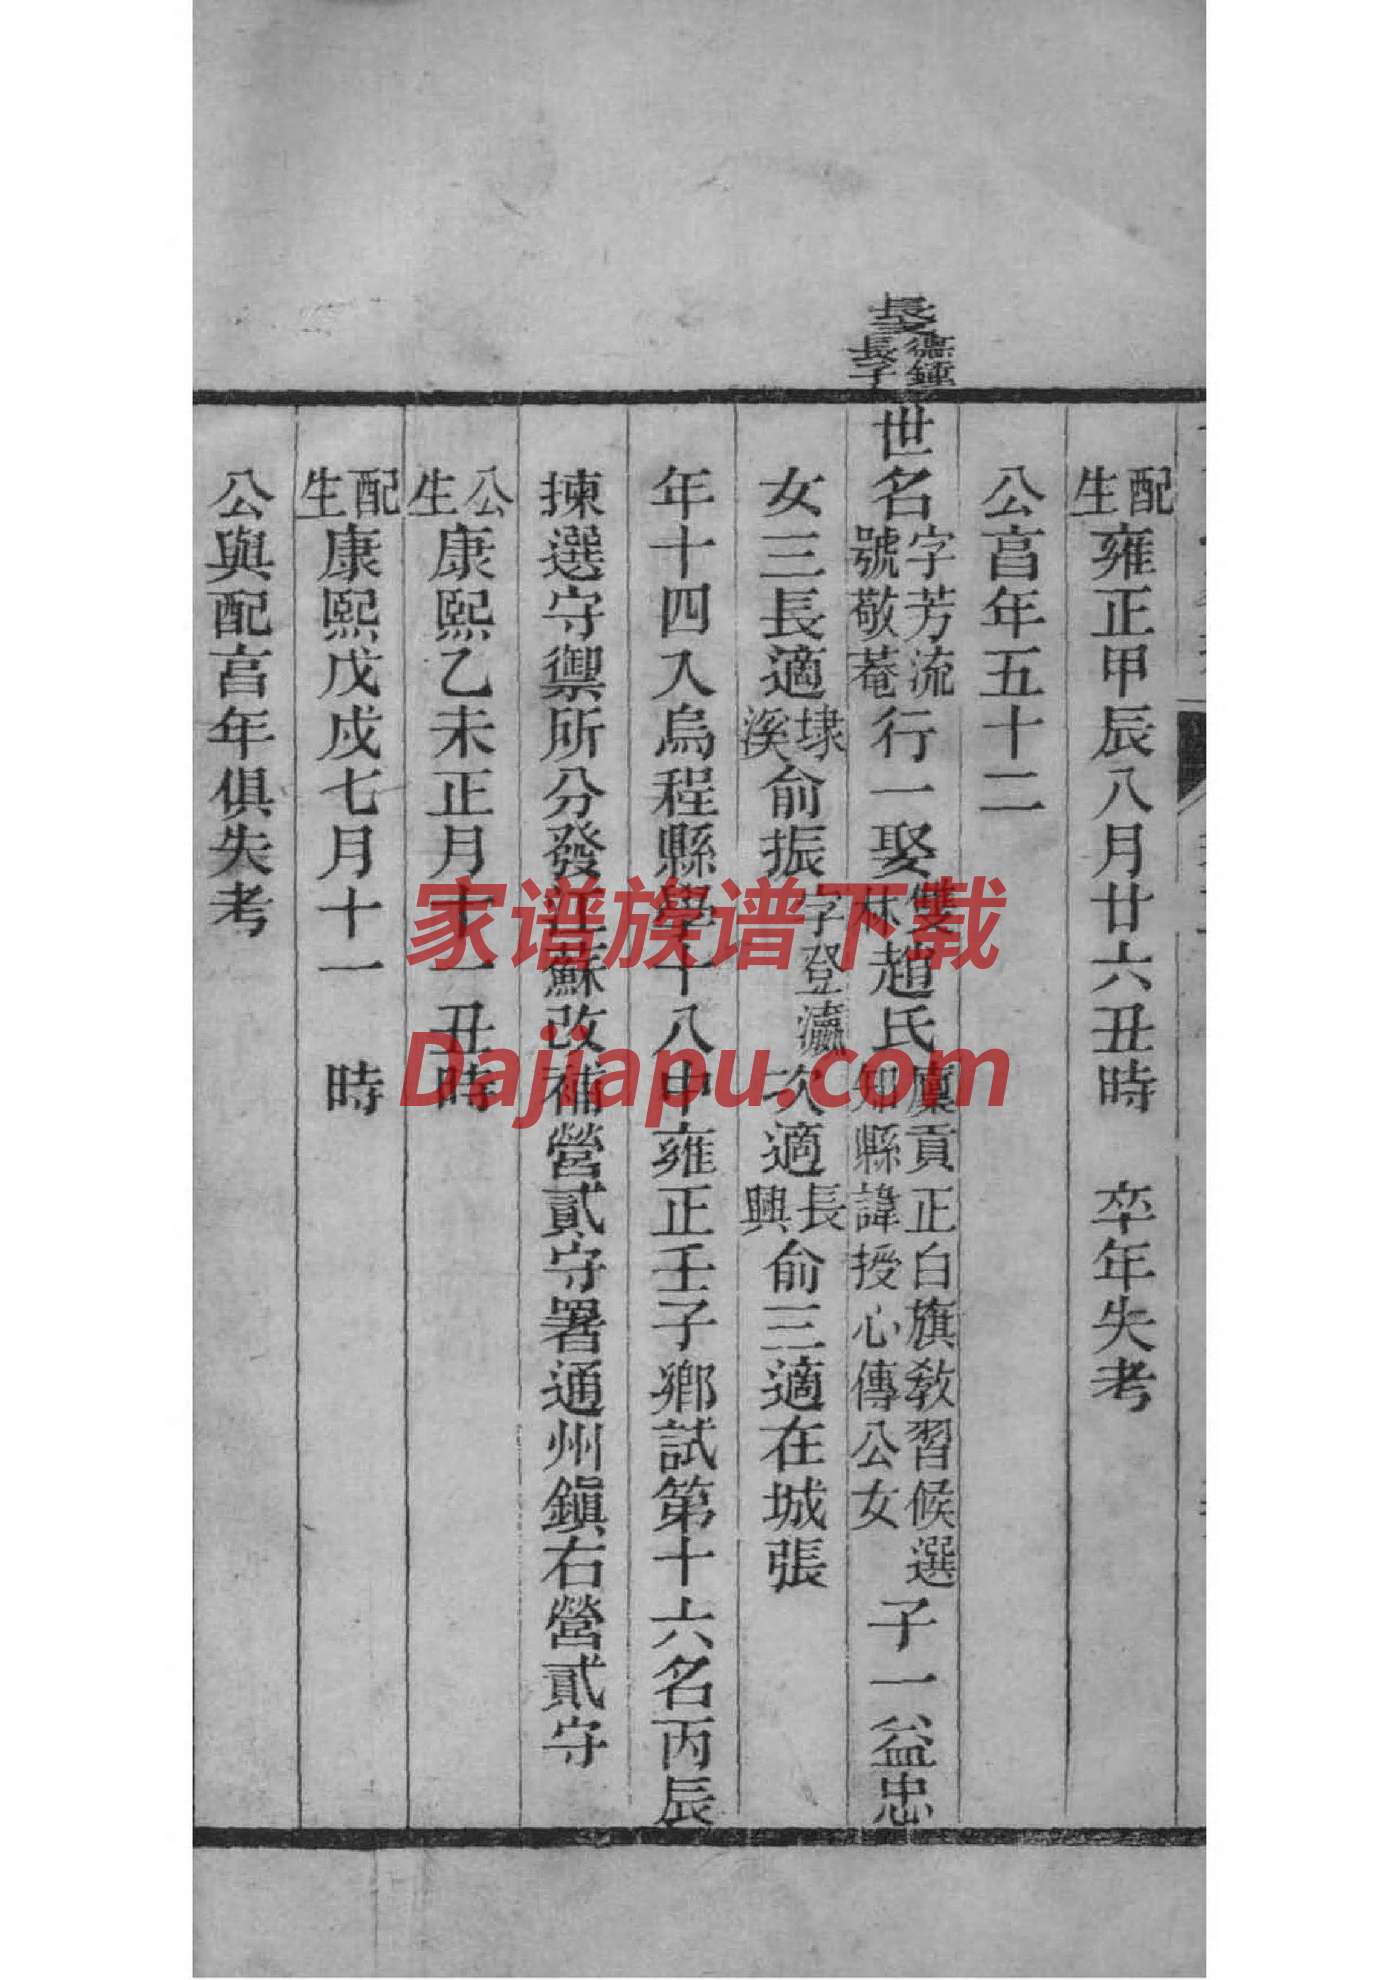 配生雍正甲辰八月廿六丑時 卒年失考
公亯年五十二
長子德鍾長子世名字芳流號敬菴行一娶雙林趙氏廩貢正白旗教習候選知縣諱授心傳公女子一益忠
女三長適埭溪俞振字登瀛次適長興俞三適在城張
年十四入烏程縣學十八中雍正壬子鄉試第十六名丙辰
揀選守禦所分發江蘇改補營貳守署通州鎭右營貳守
公生康熙乙未正月十一丑時
配生康熙戊戌七月十一 時
公與配亯年俱失考
家谱族谱下载
Dajiapu.com